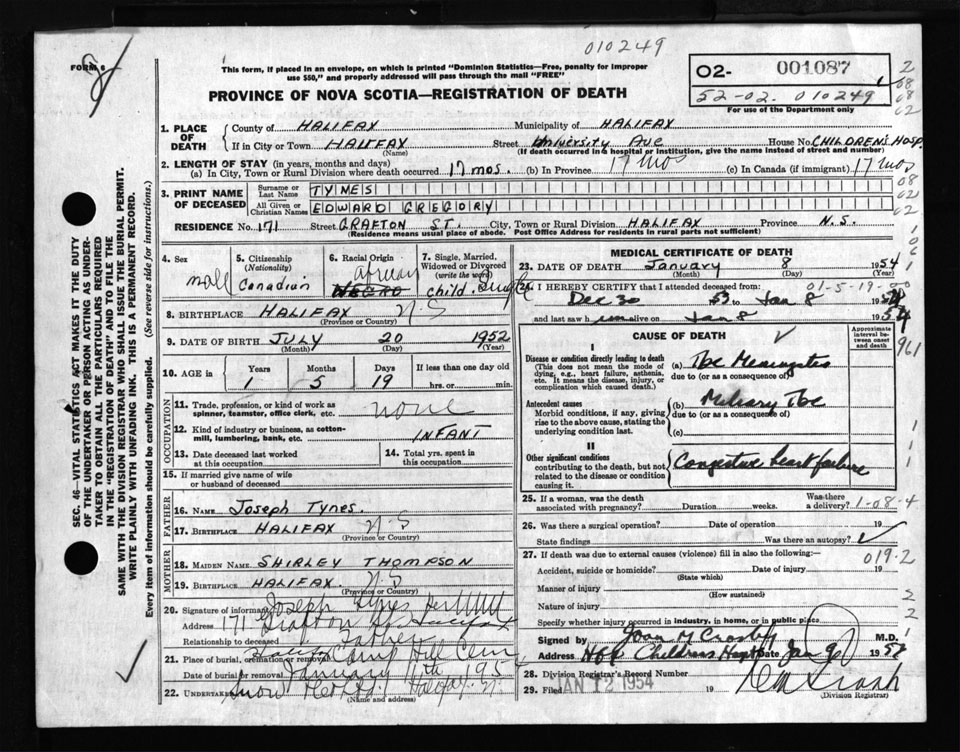 010249
FORM 6
This form, if placed in an envelope, on which is printed "Dominion Statistics—Free, penalty for improper
use $50," and properly addressed will pass through the mail "FREE"
PROVINCE OF NOVA SCOTIA—REGISTRATION OF DEATH
02- 001087
52-02. 010249
For use of the Department only
2
68
68
62
1. PLACE OF DEATH
County of HALIFAX Municipality of HALIFAX
If in City or Town HALIFAX Street University Ave House No. CHILDREN'S Hosp.
(Name) (If death occurred in a hospital or institution, give the name instead of street and number)
2. LENGTH OF STAY (in years, months and days)
(a) In City, Town or Rural Division where death occurred 17 mos. (b) In Province 17 mos (c) In Canada (if immigrant) 17 mos
3. PRINT NAME OF DECEASED
Surname or Last Name TYNES
All Given or Christian Names EDWARD GREGORY
08
02
62
RESIDENCE No. 171 Street GRAFTON ST. City, Town or Rural Division HALIFAX Province N.S.
(Residence means usual place of abode. Post Office Address for residents in rural parts not sufficient)
4. Sex
5. Citizenship (Nationality) Canadian
6. Racial Origin African
NEGRO
7. Single, Married, Widowed or Divorced (write the word) child. Single
8. BIRTHPLACE HALIFAX N S
(Province or Country)
9. DATE OF BIRTH JULY 20 1952
(Month) (Day) (Year)
10. AGE in Years Months Days If less than one day old
1 5 19 hrs. or min.
OCCUPATION
11. Trade, profession or kind of work as
spinner, teamster, office clerk, etc. none
12. Kind of industry or business, as cotton-
mill, lumbering, bank, etc. INFANT
13. Date deceased last worked
at this occupation
14. Total yrs. spent in
this occupation
15. If married give name of wife
or husband of deceased
FATHER
16. Name Joseph Tynes.
17. Birthplace HALIFAX N-S
(Province or Country)
MOTHER
18. MAIDEN NAME SHIRLEY THOMPSON
19. BIRTHPLACE HALIFAX. N.S
(Province or Country)
20. Signature of informant Joseph Tynes per
Address 171 Grafton St Halifax
Relationship to deceased Father
21. Place of burial, cremation or removal Halifax Camp Hill Cem
Date of burial or removal January 11th 195
22. UNDERTAKER Snow Halifax. N.
(Name and address)
MEDICAL CERTIFICATE OF DEATH
23. DATE OF DEATH January 8 1954
(Month) (Day) (Year)
24. I HEREBY CERTIFY that I attended deceased from: 01-5-19-00
Dec 30 53 to Jan 8 1954
and last saw him alive on Jan 8 1954
CAUSE OF DEATH
Approximate
interval be-
tween onset
and death
I
Disease or condition directly leading to death
(This does not mean the mode of
dying, e.g., heart failure, asthenia,
etc. It means the disease, injury, or
complication which caused death.)
(a) Tbc Meningitis
due to (or as a consequence of)
Antecedent causes
Morbid conditions, if any, giving
rise to the above cause, stating the
underlying condition last.
(b) Miliary Tbc
due to (or as a consequence of)
(c)
II
Other significant conditions
contributing to the death, but not
related to the disease or condition
causing it.
Congestive heart failure
25. If a woman, was the death
associated with pregnancy? Duration weeks. Was there
a delivery? 1-08-4
26. Was there a surgical operation? Date of operation 19
State findings Was there an autopsy?
27. If death was due to external causes (violence) fill in also the following:—
019-2
Accident, suicide or homicide? Date of injury 19
(State which)
Manner of injury
(How sustained)
Nature of injury
Specify whether injury occurred in industry, in home, or in public place
Signed by Joan M Crosby M.D.
Address Hfx Childrens Hospt Date Jan 9 195
28. Division Registrar's Record Number
29. Filed JAN 12 1954 19
(Division Registrar)
SEC. 46—VITAL STATISTICS ACT MAKES IT THE DUTY
OF THE UNDERTAKER OR PERSON ACTING AS UNDER-
TAKER TO OBTAIN ALL THE PARTICULARS REQUIRED
IN THE "REGISTRATION OF DEATH" AND TO FILE THE
SAME WITH THE DIVISION REGISTRAR WHO SHALL ISSUE THE BURIAL PERMIT.
WRITE PLAINLY WITH UNFADING INK. THIS IS A PERMANENT RECORD.
Every item of information should be carefully supplied. (See reverse side for instructions.)